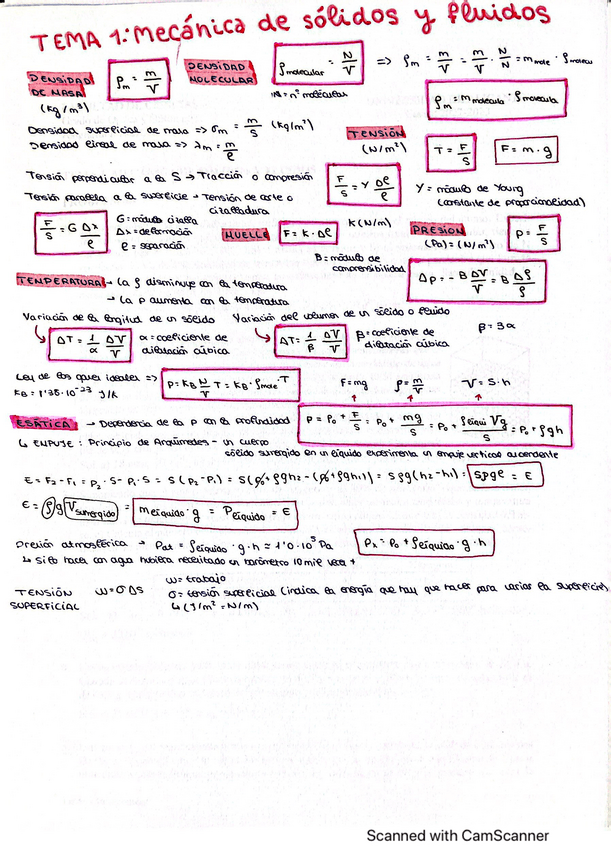 TEMA 1: Mecánica de sólidos y fluidos
DENSIDAD DE MASA ρm = m/V DENSIDAD MOLECULAR ρmolecular = N/V => ρm = m/V = m/V · N/N = mmole · ρmolecu
(Kg/m³) N = nº moléculas ρm = mmolecula · ρmolecula
Densidad superficial de masa => σm = m/S (Kg/m²)
Densidad lineal de masa => λm = m/l
TENSIÓN (N/m²) T = F/S F = m·g
Tensión perpendicular a la S → Tracción o compresión F/S = Y Δl/l Y = módulo de Young
Tensión paralela a la superficie → Tensión de corte o cizalladura (constante de proporcionalidad)
F/S = G Δx/l G = módulo cizalla
Δx = deformación
l = separación
MUELLE F = K·Δl K(N/m) PRESIÓN (Pa) = (N/m²) P = F/S
B = módulo de comprensibilidad Δp = -B ΔV/V = B Δρ/ρ
TENPERATURA → La ρ disminuye con la temperatura
→ La P aumenta con la temperatura
Variación de la longitud de un sólido Variación del volumen de un sólido o fluido
ΔT = 1/α ΔV/V α = coeficiente de dilatación cúbica ΔT = 1/β ΔV/V β = coeficiente de dilatación cúbica β = 3α
Ley de los gases ideales => P = KB N/V T = KB · ρmole T F = mg ρ = m/V V = S·h
KB = 1'38·10⁻²³ J/K
ESÁTICA → Dependencia de la P con la profundidad P = P₀ + F/S = P₀ + mg/S = P₀ + ρliqui Vg/S = P₀ + ρgh
↳ EMPUJE: Principio de Arquímedes - un cuerpo
sólido sumergido en un líquido experimenta un empuje vertical ascendente
E = F₂ - F₁ = P₂·S - P₁·S = S(P₂-P₁) = S(P₀ + ρgh₂ - (P₀ + ρgh₁)) = Sρg(h₂-h₁) = Sρgl = E
E = ρg Vsumergido = mlíquido · g = Plíquido = E
Presión atmosférica → Pat = ρlíquido · g · h = 1'0·10⁵ Pa Px = P₀ + ρlíquido · g · h
↳ Si lo hacen con agua hubiera necesitado un barómetro 10 mil veces +
TENSIÓN SUPERFICIAL W = σΔS W = trabajo
σ = tensión superficial (indica la energía que hay que hacer para variar la superficie)
↳ (J/m² = N/m)
Scanned with CamScanner